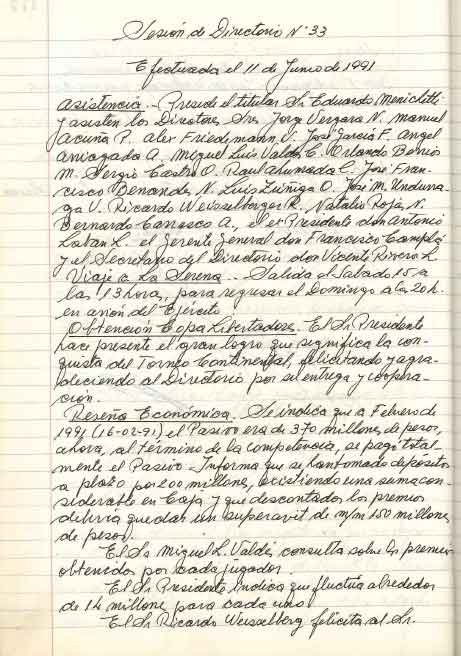 Sesión de Directorio N° 33
Efectuada el 11 de Junio de 1991
Asistencia.- Preside el titular Sr. Eduardo Menichetti
y asisten los Directores Sres. Jorge Vergara N. Manuel
Acuña P. Alex Friedemann V. José García F. Angel
Arriagada A. Miguel Luis Valdés C. Orlando Berríos
M. Sergio Castro O. Raul Ahumada C. José Fran-
cisco Benandes N. Luis Zúñiga O. José M. Undurra-
ga V. Ricardo Weisselberger R., Natalio Rojas N.
Bernardo Carrasco A., el ex Presidente don Antonio
Laban L. el Gerente General don Francisco Campló
y el Secretario del Directorio don Vicente Rivera L.
Viaje a La Serena.- Salida el Sábado 15 a
las 13 horas, para regresar el Domingo a las 20 h.
en avión del Ejército
Obtención Copa Libertadores. El Sr Presidente
hace presente el gran logro que significa la con-
quista del Torneo Continental, felicitando y agra-
deciendo al Directorio por su entrega y coopera-
ción.
Reseña Económica. Se indica que a Febrero de
1991 (16-02-91) el Pasivo era de 370 millones de pesos,
ahora, al término de la competencia, se pagó total-
mente el Pasivo. Informa que se han tomado depósitos
a plazo por 200 millones, existiendo una suma con-
siderable en Caja y que descontados los premios
debería quedar un superavit de m/m 150 millones
de pesos.
El Sr Miguel L. Valdés consulta sobre los premios
obtenidos por cada jugador.
El Sr Presidente indica que fluctúa alrededor
de 14 millones para cada uno
El Sr Ricardo Weisselberg felicita al Sr.